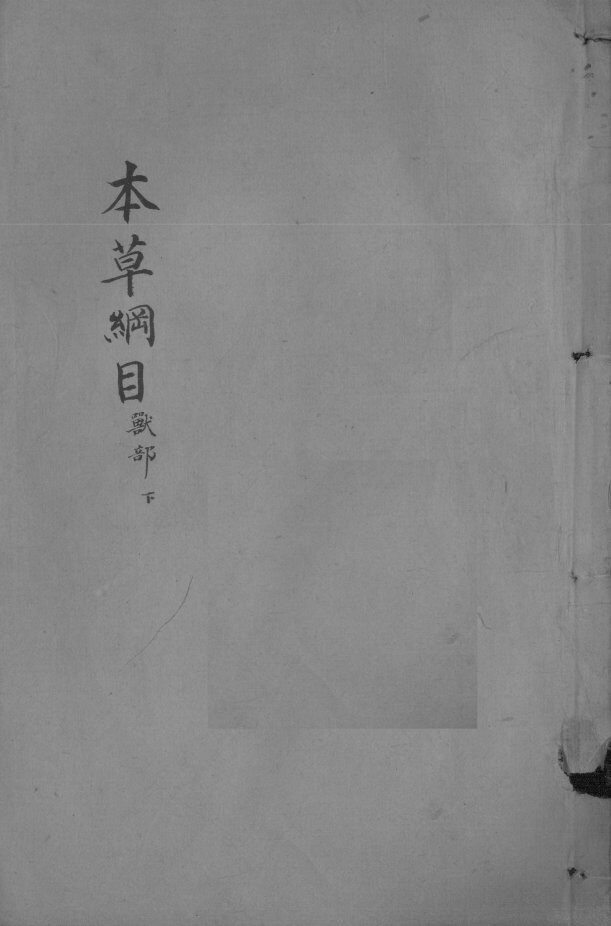 本草綱目獸部下